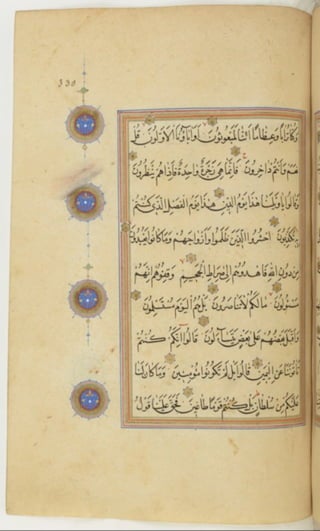 330
وَكُنَّا تُرَابًا وَعِظَامًا أَئِنَّا لَمَبْعُوثُونَ أَوَآبَاؤُنَا الْأَوَّلُونَ قُلْ
نَعَمْ وَأَنْتُمْ دَاخِرُونَ فَإِنَّمَا هِيَ زَجْرَةٌ وَاحِدَةٌ فَإِذَا هُمْ يَنْظُرُونَ
وَقَالُوا يَا وَيْلَنَا هَذَا يَوْمُ الدِّينِ هَذَا يَوْمُ الْفَصْلِ الَّذِي كُنْتُمْ
بِهِ تُكَذِّبُونَ احْشُرُوا الَّذِينَ ظَلَمُوا وَأَزْوَاجَهُمْ وَمَا كَانُوا يَعْبُدُونَ
مِنْ دُونِ اللَّهِ فَاهْدُوهُمْ إِلَى صِرَاطِ الْجَحِيمِ وَقِفُوهُمْ إِنَّهُمْ
مَسْئُولُونَ مَا لَكُمْ لَا تَنَاصَرُونَ بَلْ هُمُ الْيَوْمَ مُسْتَسْلِمُونَ
وَأَقْبَلَ بَعْضُهُمْ عَلَى بَعْضٍ يَتَسَاءَلُونَ قَالُوا إِنَّكُمْ كُنْتُمْ
تَأْتُونَنَا عَنِ الْيَمِينِ قَالُوا بَلْ لَمْ تَكُونُوا مُؤْمِنِينَ وَمَا كَانَ لَنَا
عَلَيْكُمْ مِنْ سُلْطَانٍ بَلْ كُنْتُمْ قَوْمًا طَاغِينَ فَحَقَّ عَلَيْنَا قَوْلُ